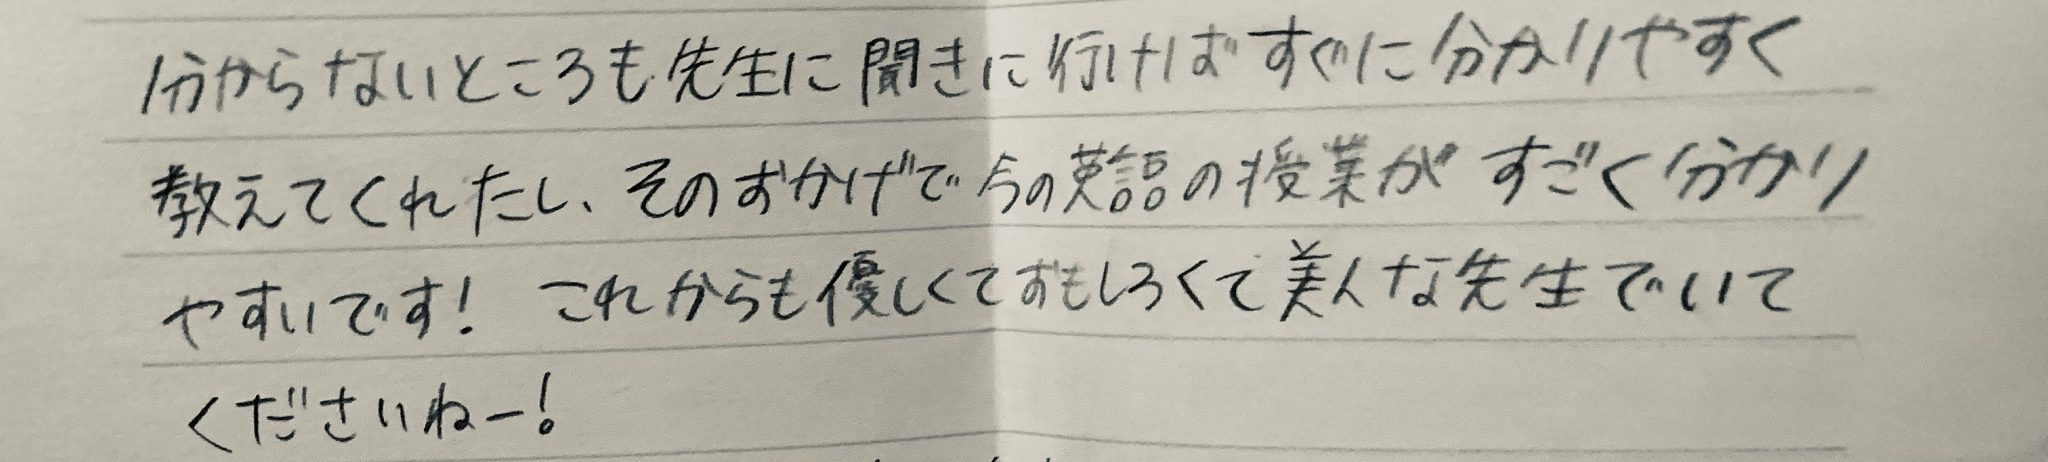 分からないところも先生に聞きに行けばすぐに分かりやすく
教えてくれたし、そのおかげで今の英語の授業がすごく分かり
やすいです！ これからも優しくておもしろくて美人な先生でいて
くださいねー！